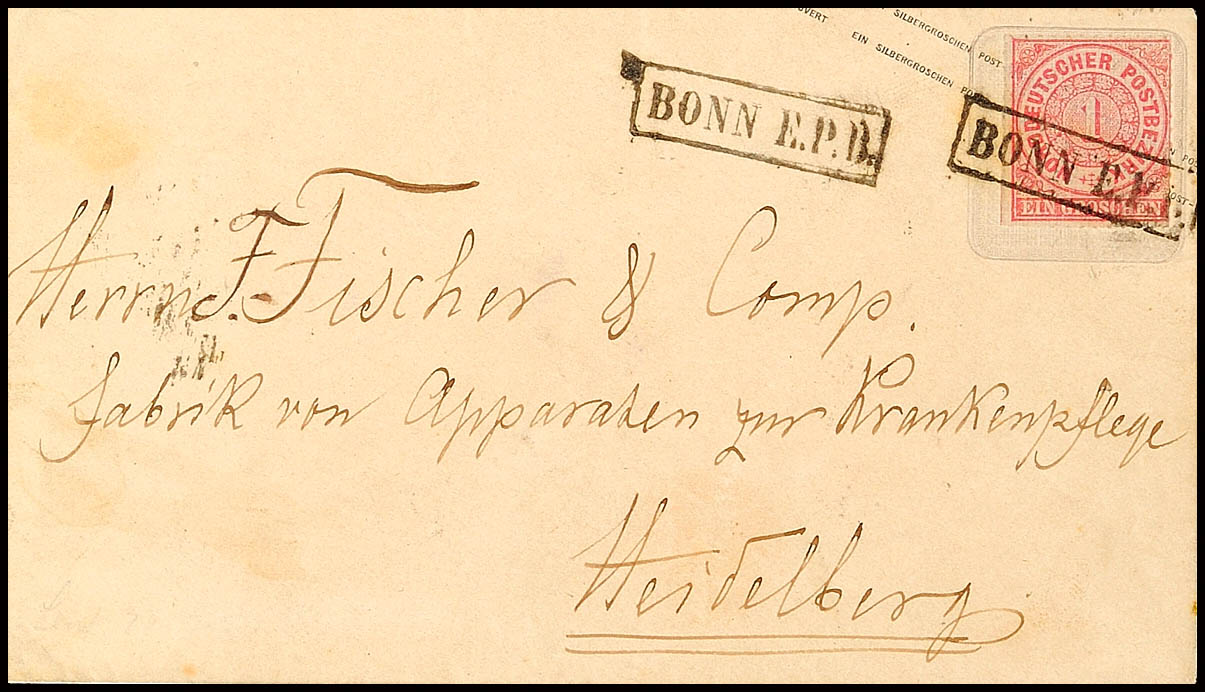 UVERT
SILBERGROSCHEN POST-
EIN SILBERGROSCHEN
DEUTSCHER POSTBEZIRK
1
EIN GROSCHEN
BONN E.P.B.
BONN
Herrn F. Fischer & Comp.
Fabrik von Apparaten zur Krankenpflege
Heidelberg